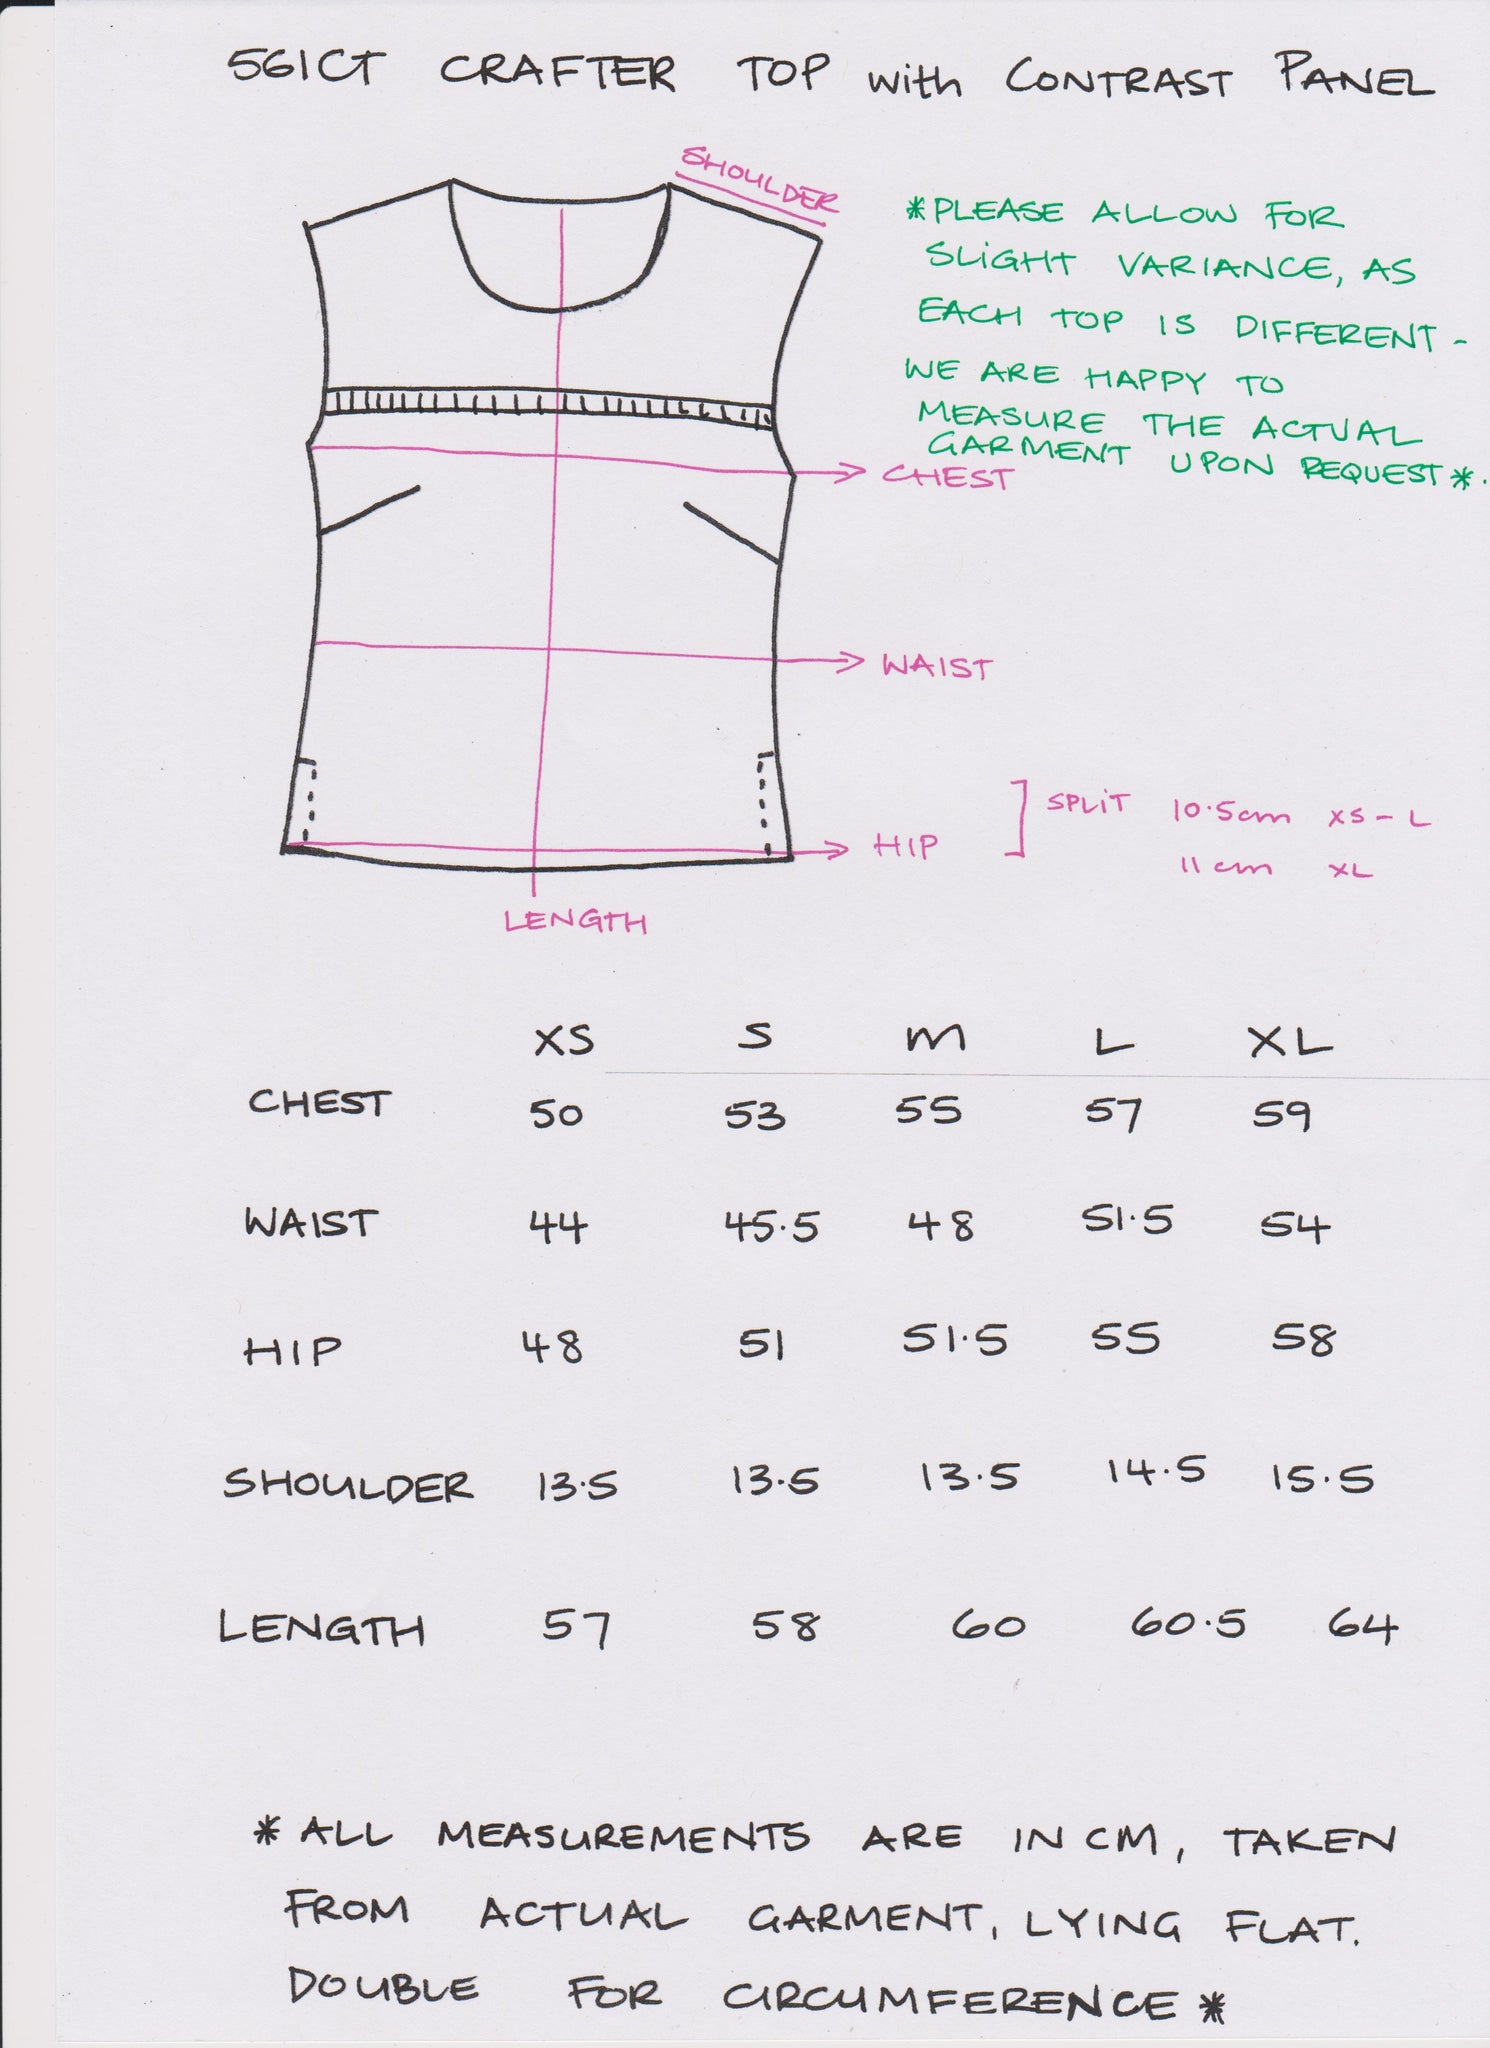 561CT CRAFTER TOP with CONTRAST PANEL
SHOULDER
*PLEASE ALLOW FOR
SLIGHT VARIANCE, AS
EACH TOP IS DIFFERENT -
WE ARE HAPPY TO
MEASURE THE ACTUAL
GARMENT UPON REQUEST *.
CHEST
WAIST
HIP
SPLIT 10.5cm XS - L
11 cm XL
LENGTH
XS S M L XL
CHEST 50 53 55 57 59
WAIST 44 45.5 48 51.5 54
HIP 48 51 51.5 55 58
SHOULDER 13.5 13.5 13.5 14.5 15.5
LENGTH 57 58 60 60.5 64
* ALL MEASUREMENTS ARE IN CM, TAKEN
FROM ACTUAL GARMENT, LYING FLAT.
DOUBLE FOR CIRCUMFERENCE *